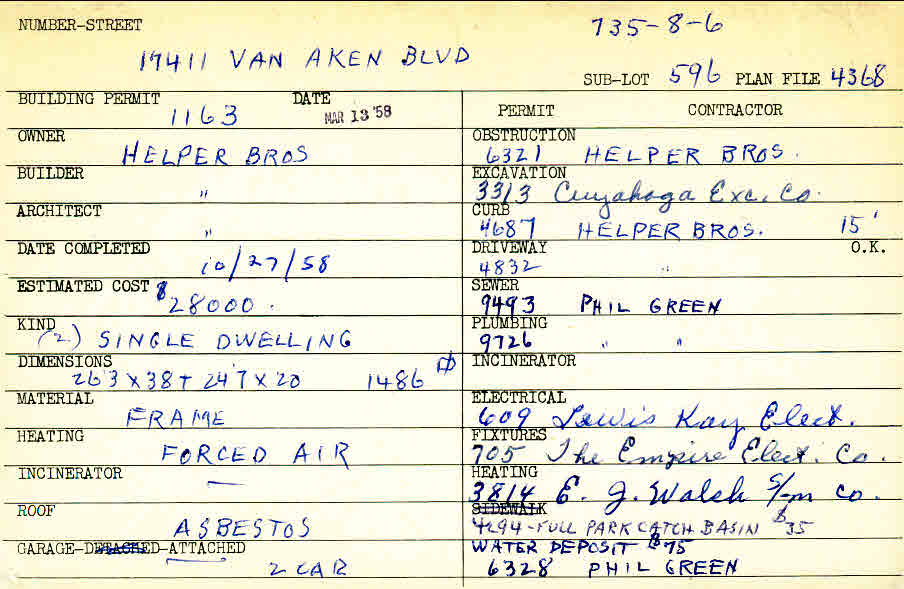 NUMBER-STREET 735-8-6
17411 VAN AKEN BLVD
SUB-LOT 596 PLAN FILE 4368
BUILDING PERMIT DATE
1163 MAR 13 '58
OWNER
HELPER BROS
BUILDER
"
ARCHITECT
"
DATE COMPLETED
10/27/58
ESTIMATED COST $
28000.
KIND
(2) SINGLE DWELLING
DIMENSIONS
26'3 x 38 + 24'7 x 20 1486
MATERIAL
FRAME
HEATING
FORCED AIR
INCINERATOR
—
ROOF
ASBESTOS
GARAGE-DETACHED-ATTACHED
2 CAR
PERMIT CONTRACTOR
OBSTRUCTION
6321 HELPER BROS.
EXCAVATION
3313 Cuyahoga Exc. Co.
CURB
4687 HELPER BROS. 15'
DRIVEWAY O.K.
4832 "
SEWER
9493 PHIL GREEN
PLUMBING
9726 " "
INCINERATOR
ELECTRICAL
609 Lewis Kay Elect.
FIXTURES
705 The Empire Elect. Co.
HEATING
3814 E. J. Walsh S/m Co.
SIDEWALK
4294-FULL PARK CATCH BASIN $35
WATER DEPOSIT $75
6328 PHIL GREEN